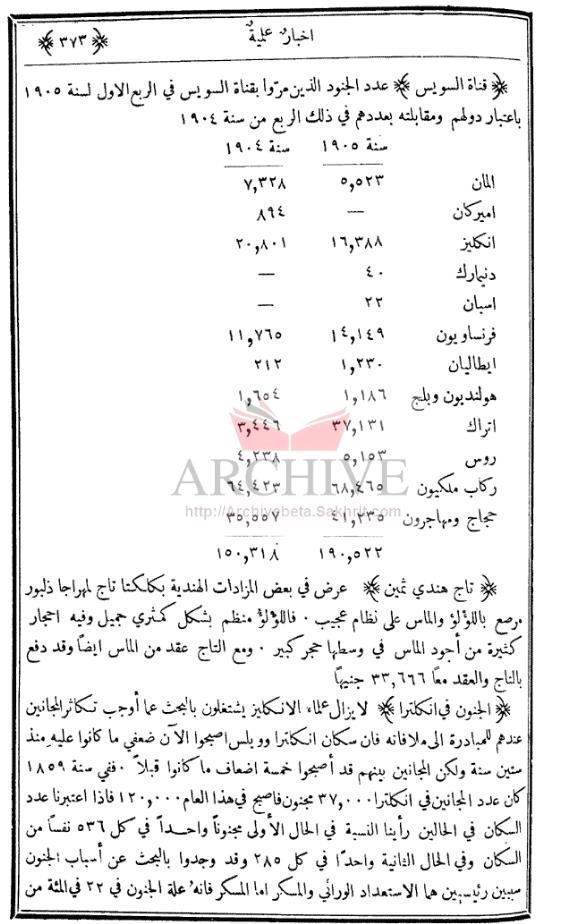 ﴿ ٣٧٣ ﴾ اخبار علمية
﴿ قناة السويس ﴾ عدد الجنود الذين مرّوا بقناة السويس في الربع الاول لسنة ١٩٠٥
باعتبار دولهم ومقابلته بعددهم في ذلك الربع من سنة ١٩٠٤
سنة ١٩٠٥ سنة ١٩٠٤
المان ٥,٥٢٣ ٧,٣٢٨
اميركان — ٨٩٤
انكليز ١٦,٣٨٨ ٢٠,٨٠١
دنيمارك ٤٠ —
اسبان ٢٢ —
فرنساويون ١٤,١٤٩ ١١,٧٦٥
ايطاليان ١,٢٣٠ ٢١٢
هولنديون وبلج ١,١٨٦ ١,٦٥٤
اتراك ٣٧,١٣١ ٣,٤٤٦
روس ٥,١٥٣ ٤,٢٣٨
ركاب ملكيون ٦٨,٤٦٥ ٦٤,٤٢٣
حجاج ومهاجرون ٤١,٢٣٥ ٣٥,٥٥٧
١٩٠,٥٢٢ ١٥٠,٣١٨
ARCHIVE
http://Archivebeta.Sakhrit.com
﴿ تاج هندي ثمين ﴾ عرض في بعض المزادات الهندية بكلكتا تاج لمهراجا ذلبور
مرصع باللؤلؤ والماس على نظام عجيب . فاللؤلؤ منظم بشكل كمثري جميل وفيه احجار
كثيرة من أجود الماس في وسطها حجر كبير . ومع التاج عقد من الماس ايضاً وقد دفع
بالتاج والعقد معاً ٣٣,٦٦٦ جنيهاً
﴿ الجنون في انكلترا ﴾ لا يزال علماء الانكليز يشتغلون بالبحث عما أوجب تكاثر المجانين
عندهم للمبادرة الى ملافاته فان سكان انكلترا وويلس اصبحوا الآن ضعفي ما كانوا عليه منذ
ستين سنة ولكن المجانين بينهم قد أصبحوا خمسة اضعاف ما كانوا قبلاً . ففي سنة ١٨٥٩
كان عدد المجانين في انكلترا ٣٧,٠٠٠ مجنون فاصبح في هذا العام ١٢٠,٠٠٠ فاذا اعتبرنا عدد
السكان في الحالين رأينا النسبة في الحال الأولى مجنوناً واحداً في كل ٥٣٦ نفساً من
السكان وفي الحال الثانية واحداً في كل ٢٨٥ وقد وجدوا بالبحث عن أسباب الجنون
سببين رئيسيين هما الاستعداد الوراثي والمسكر اما المسكر فانه علة الجنون في ٢٢ في المئة من